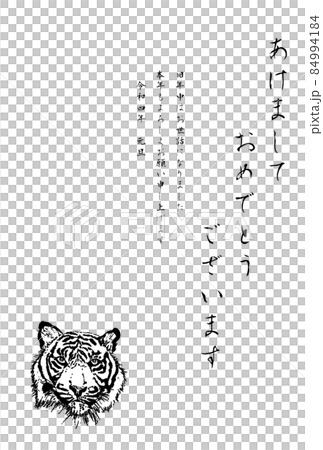 あけまして
おめでとう
ございます
旧年中はお世話になりました
本年もよろしくお願い申し上げます
令和四年 元旦
PIXTA
pixta.jp - 84994184